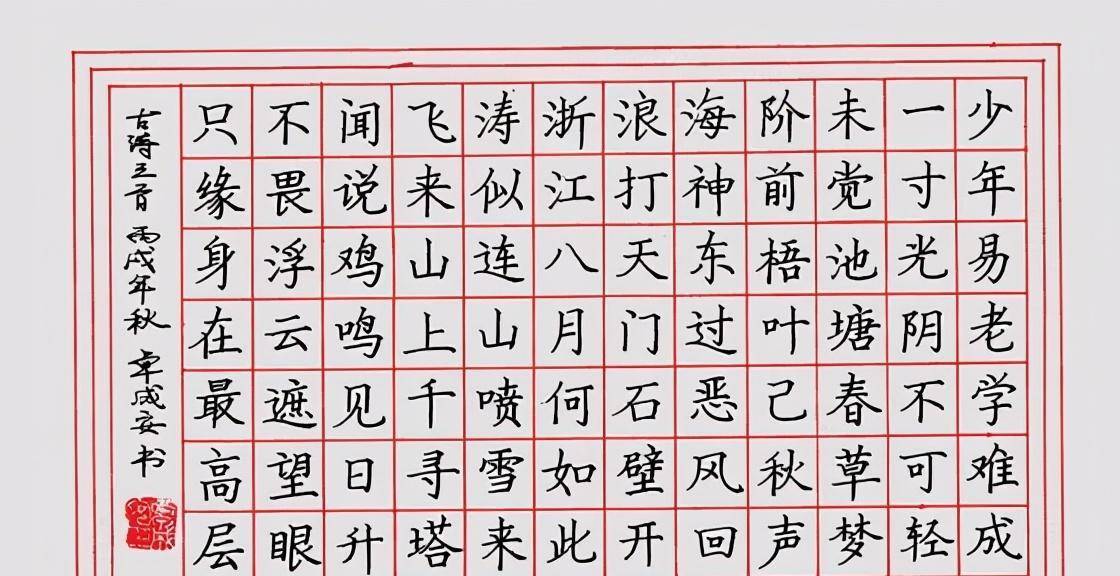 少年易老学难成
一寸光阴不可轻
未觉池塘春草梦
阶前梧叶己秋声
海神东过恶风回
浪打天门石壁开
浙江八月何如此
涛似连山喷雪来
飞来山上千寻塔
闻说鸡鸣见日升
不畏浮云遮望眼
只缘身在最高层
古诗三首 丙戌年秋 卓成安书